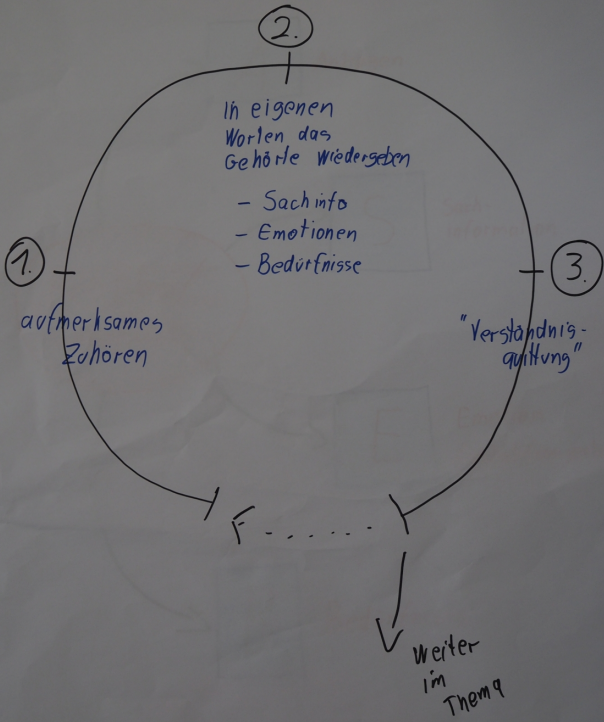 2.
In eigenen
Worten das
Gehörte wiedergeben
- Sachinfo
- Emotionen
- Bedürfnisse
1.
aufmerksames
Zuhören
3.
"Verständnis-
quittung"
Weiter
im
Thema